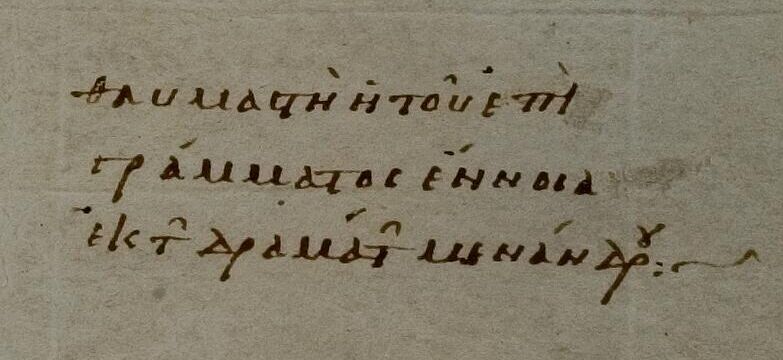 θαυμαστὴ ἡ τοῦ ἐπι
γράμματος ἔννοια
ἐκ τ̑ δραμάτ̑ μενάνδρου: